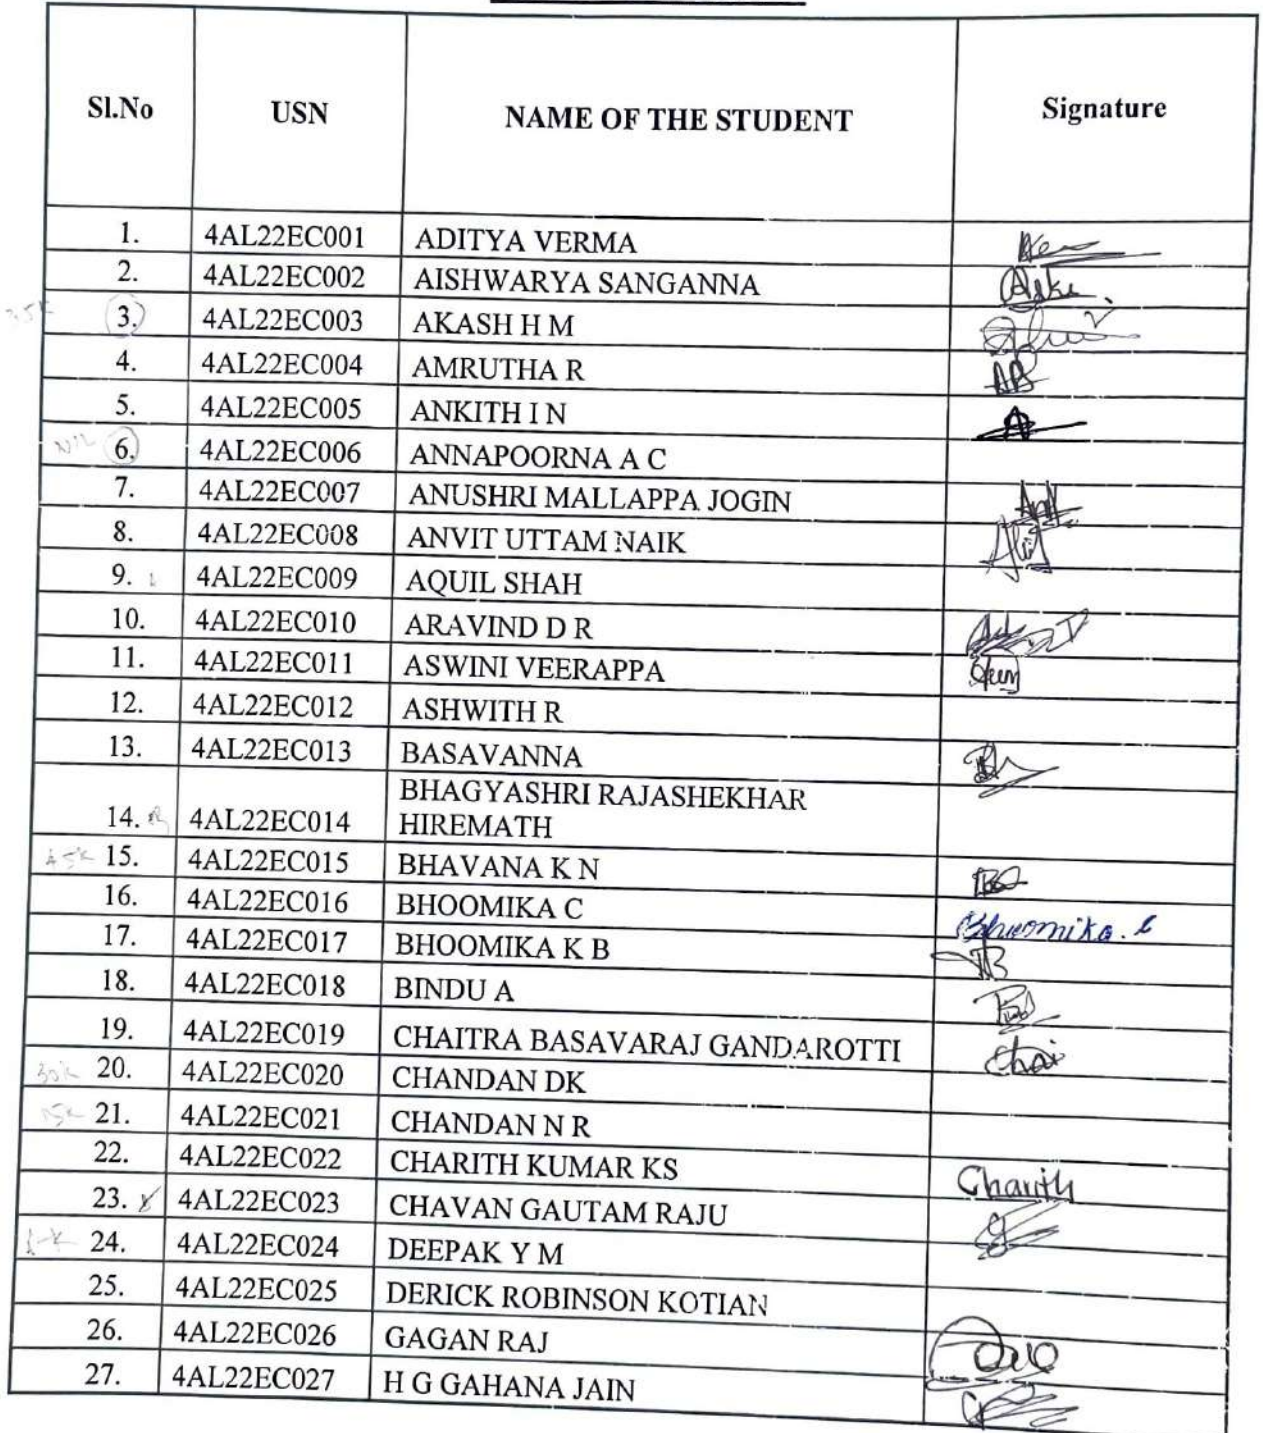 Sl.No USN NAME OF THE STUDENT Signature
1. 4AL22EC001 ADITYA VERMA
2. 4AL22EC002 AISHWARYA SANGANNA
3. 4AL22EC003 AKASH H M
4. 4AL22EC004 AMRUTHA R
5. 4AL22EC005 ANKITH I N
NIL 6. 4AL22EC006 ANNAPOORNA A C
7. 4AL22EC007 ANUSHRI MALLAPPA JOGIN
8. 4AL22EC008 ANVIT UTTAM NAIK
9. 4AL22EC009 AQUIL SHAH
10. 4AL22EC010 ARAVIND D R
11. 4AL22EC011 ASWINI VEERAPPA
12. 4AL22EC012 ASHWITH R
13. 4AL22EC013 BASAVANNA
14. 4AL22EC014 BHAGYASHRI RAJASHEKHAR
HIREMATH
45K 15. 4AL22EC015 BHAVANA K N
16. 4AL22EC016 BHOOMIKA C Bhoomika. C
17. 4AL22EC017 BHOOMIKA K B
18. 4AL22EC018 BINDU A
19. 4AL22EC019 CHAITRA BASAVARAJ GANDAROTTI Chai
30K 20. 4AL22EC020 CHANDAN DK
15K 21. 4AL22EC021 CHANDAN N R
22. 4AL22EC022 CHARITH KUMAR KS Charith
23. 4AL22EC023 CHAVAN GAUTAM RAJU
24. 4AL22EC024 DEEPAK Y M
25. 4AL22EC025 DERICK ROBINSON KOTIAN
26. 4AL22EC026 GAGAN RAJ
27. 4AL22EC027 H G GAHANA JAIN